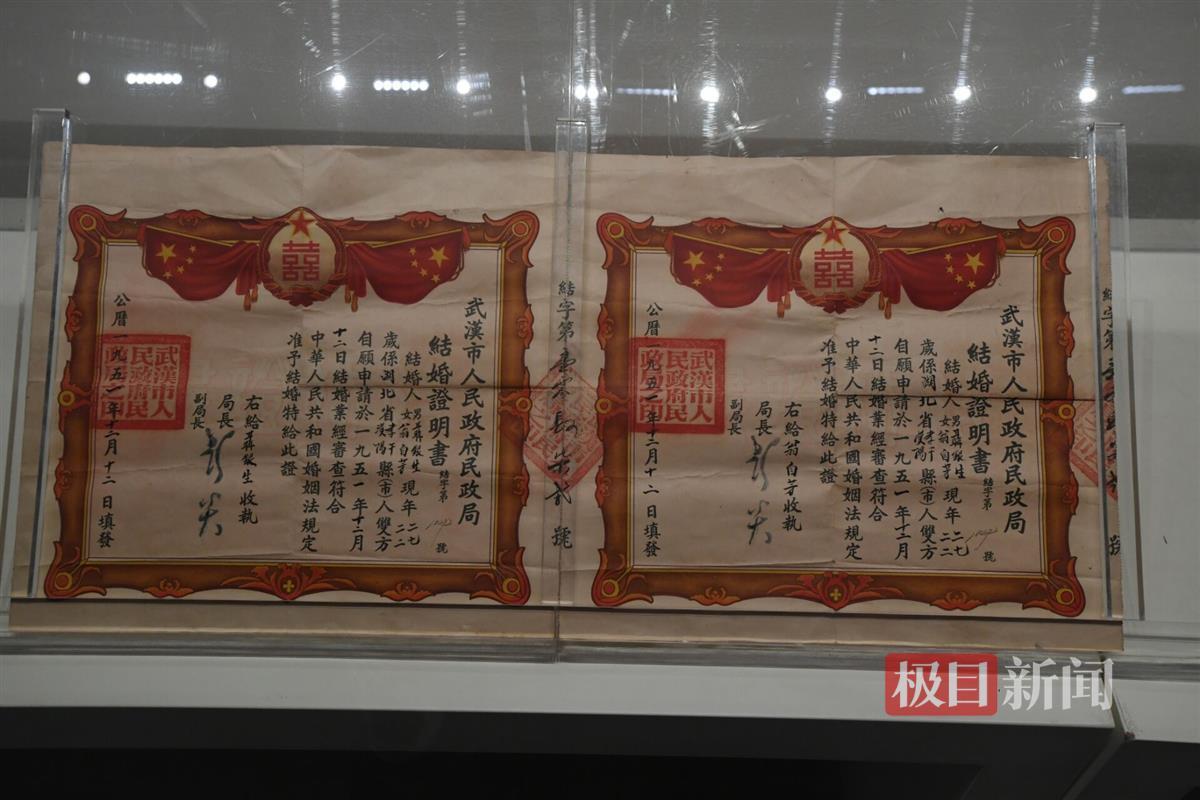 囍
武漢市人民政府民政局
結婚證明書 結字第 號
結婚人 男 生 女翁 現年 二七 二二
歲係湖北省 漢陽 縣(市)人雙方
自願申請於一九五一年十二月
十二日結婚業經審查符合
中華人民共和國婚姻法規定
准予結婚特給此證
右給 生收執
局長
副局長
公曆一九五一年十二月十二日填發
武漢市人
民政府民
政局
結字第 號
囍
武漢市人民政府民政局
結婚證明書 結字第 號
結婚人 男 生 女翁 現年 二七 二二
歲係湖北省 漢陽 縣(市)人雙方
自願申請於一九五一年十二月
十二日結婚業經審查符合
中華人民共和國婚姻法規定
准予結婚特給此證
右給翁 收執
局長
副局長
公曆一九五一年十二月十二日填發
武漢市人
民政府民
政局
結字第 號
极目新闻